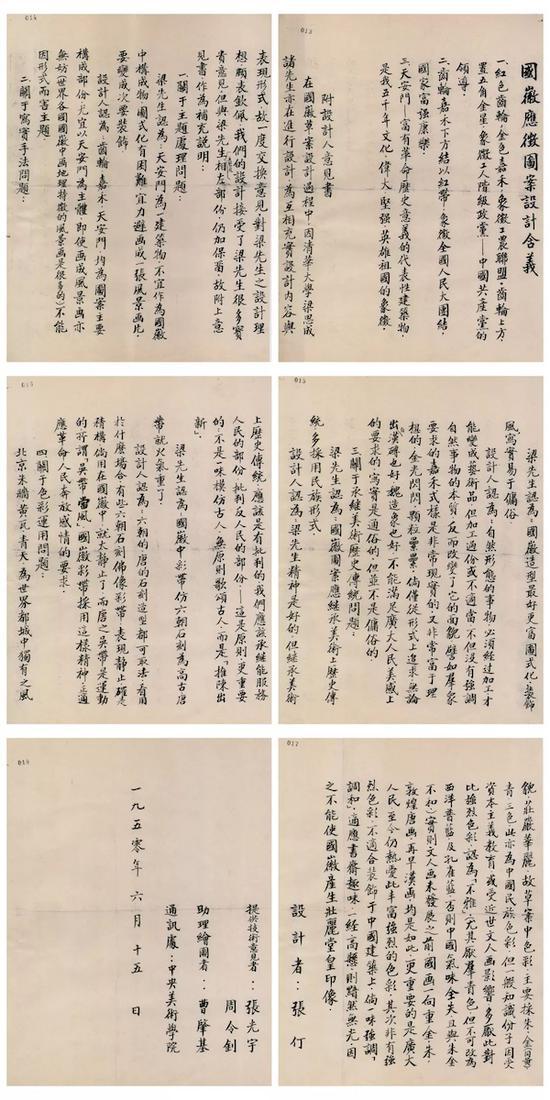 013
國徽應徵圖案設計含義
一、紅色齒輪、金色嘉禾、象徵工農聯盟。齒輪上方、
置五角金星、象徵工人階級政黨——中國共産黨的
領導。
二、齒輪嘉禾下方結以紅帶——象徵全國人民大團結、
國家富强康樂。
三、天安門——富有革命歷史意義的代表性建築物、
是我五千年文化、偉大、堅强、英雄祖國的象徵。
附設計人意見書
在國徽草案設計過程中、因清華大學梁思成
諸先生亦在進行設計、為互相充實設計内容與
014
表現形式、故一度交換意見對梁先生之設計理
想、願表欽佩、我們的設計接受了梁先生很多寶
貴意見但與梁先生相左部份、仍加保留、故附上意
見書作為補充説明:
一、關于主題處理問題:
梁先生認為:天安門為一建築物、不宜作為國徽
中構成物、圖式化有困難、宜力避畫成一張風景畫片、
要變成次要裝飾。
設計人認為:齒輪、嘉禾、天安門、均為圖案主要
構成部份、尤宜以天安門為主體、即使畫成風景畫亦
無妨(世界各國國徽中畫地理特徵的風景畫是很多的)不能
因形式而害主題。
二、關于寫實手法問題:
015
梁先生認為:國徽造型最好更富圖式化、裝飾
風、寫實易于傭俗。
設計人認為:自然形態的事物必須經过加工才
能變成藝術品、但加工過份或不適當、不但没有强調
自然事物的本質、反而改變了它的面貌、譬如群衆
要求的嘉禾式樣是非常現實的、又非常富于理
想的、金光閃閃、顆粒纍纍。倘僅從形式上追求、無論
出漢磚也好、魏造象也好、不能滿足廣大人民美感上
的要求的。寫實是通俗的、但並不是傭俗的。
三、關于承繼美術歷史傳統問題:
梁先生認為:國徽圖案應繼承美術上歷史傳
統、多採用民族形式。
設計人認為:梁先生精神是好的、但繼承美術
016
上歷史傳統、應該是有批判的、我們應該承繼能服務
人民的部份、批判反人民的部份——這是原則、更重要
的:不是一味模仿古人、無原則歌頌古人、而是「推陳出
新」。
梁先生認為:國徽中彩帶仿六朝石刻為高古唐
帶就火氣重了。
設計人認為:六朝的唐的石刻造型都可取法、看用
於什麼場合、有些六朝石刻佛像彩帶、表現静止確是
精構、倘用在國徽中、就太静止了、而唐之吴帶是運動
的、所謂「吴帶當風」國徽彩帶採用這樣精神、正適
應革命人民奔放感情的要求。
四、關于色彩運用問題:
北京朱牆、黄瓦、青天、為世界都城中獨有之風
017
貌、莊嚴華麗、故草案中色彩、主要採朱、金(同黄)
青三色、此亦為中國民族色彩、但一般知識份子因受
資本主義教育、或受近世文人畫影響、多厭此對
比強烈色彩、認為「不雅」(尤其厭群青色、但不可改為
西洋普藍、及孔雀藍、否則中國氣味全失且與朱、金
不和)實則文人畫未發展之前、國畫一向重金、朱、
敦煌唐畫、再早漢畫、均是如此、更重要的是廣大
人民、至今仍熱愛此丰富强烈的色彩、其次非有强
烈色彩、不適合裝飾于中國建築上、倘一味强調、
調和、適應書齋趣味、一經高懸、則黯然無光、因
之不能使國徽産生壯麗堂皇印像。
設計者:張仃
018
提供技術意見者:張光宇
周令釗
助理繪圖者:曹肇基
通訊處:中央美術學院
一九五零年六月十五日